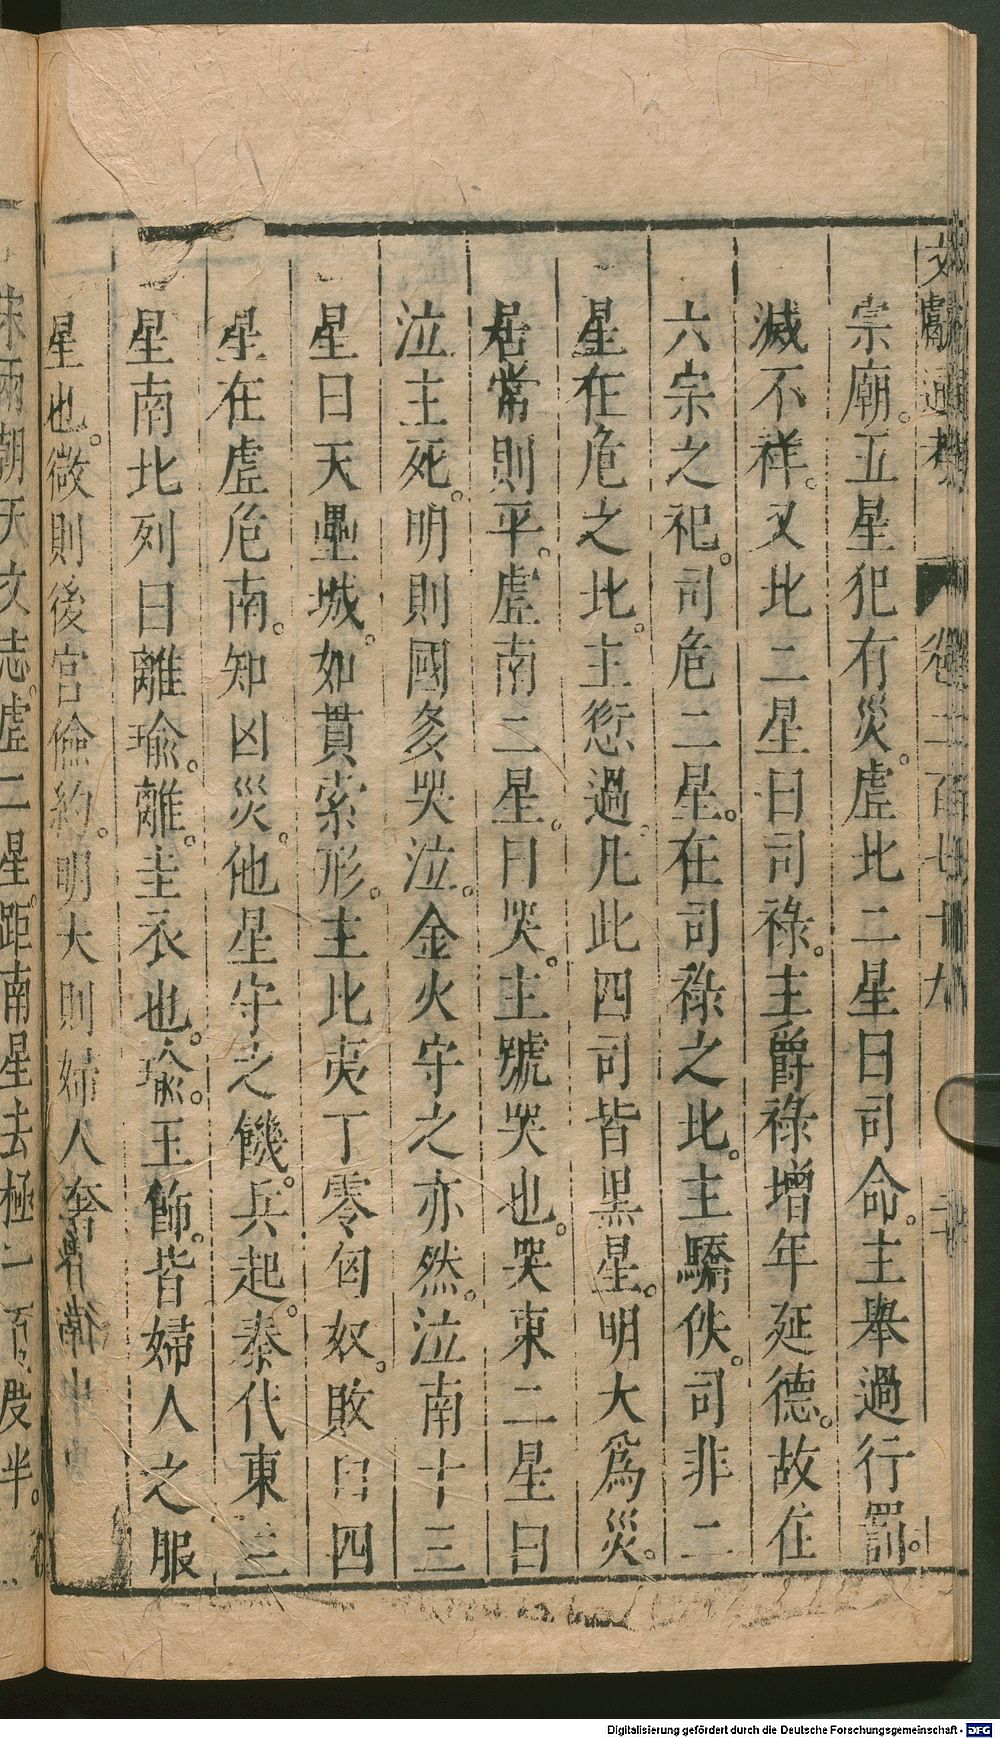 文獻通考 卷二百七十九 二
宗廟。五星犯有災。虛北二星曰司命。主舉過行罰。
滅不祥。又北二星曰司祿。主爵祿增年延德。故在
六宗之祀。司危二星。在司祿之北。主驕佚。司非二
星在危之北。主愆過。凡此四司皆黑星。明大爲災。
居常則平。虛南二星。曰哭。主號哭也。哭東二星曰
泣主死。明則國多哭泣。金火守之亦然。泣南十三
星曰天壘城。如貫索形。主北夷丁零匈奴。敗臼四
星在虛危南。知凶災。他星守之饑。兵起。秦代東三
星南北列曰離瑜。離。圭衣也。瑜。玉飾。皆婦人之服
星也。微則後宮儉約。明大則婦人奢
宋兩朝天文志。虛二星。距南星去極一百度半。
Digitalisierung gefördert durch die Deutsche Forschungsgemeinschaft - DFG